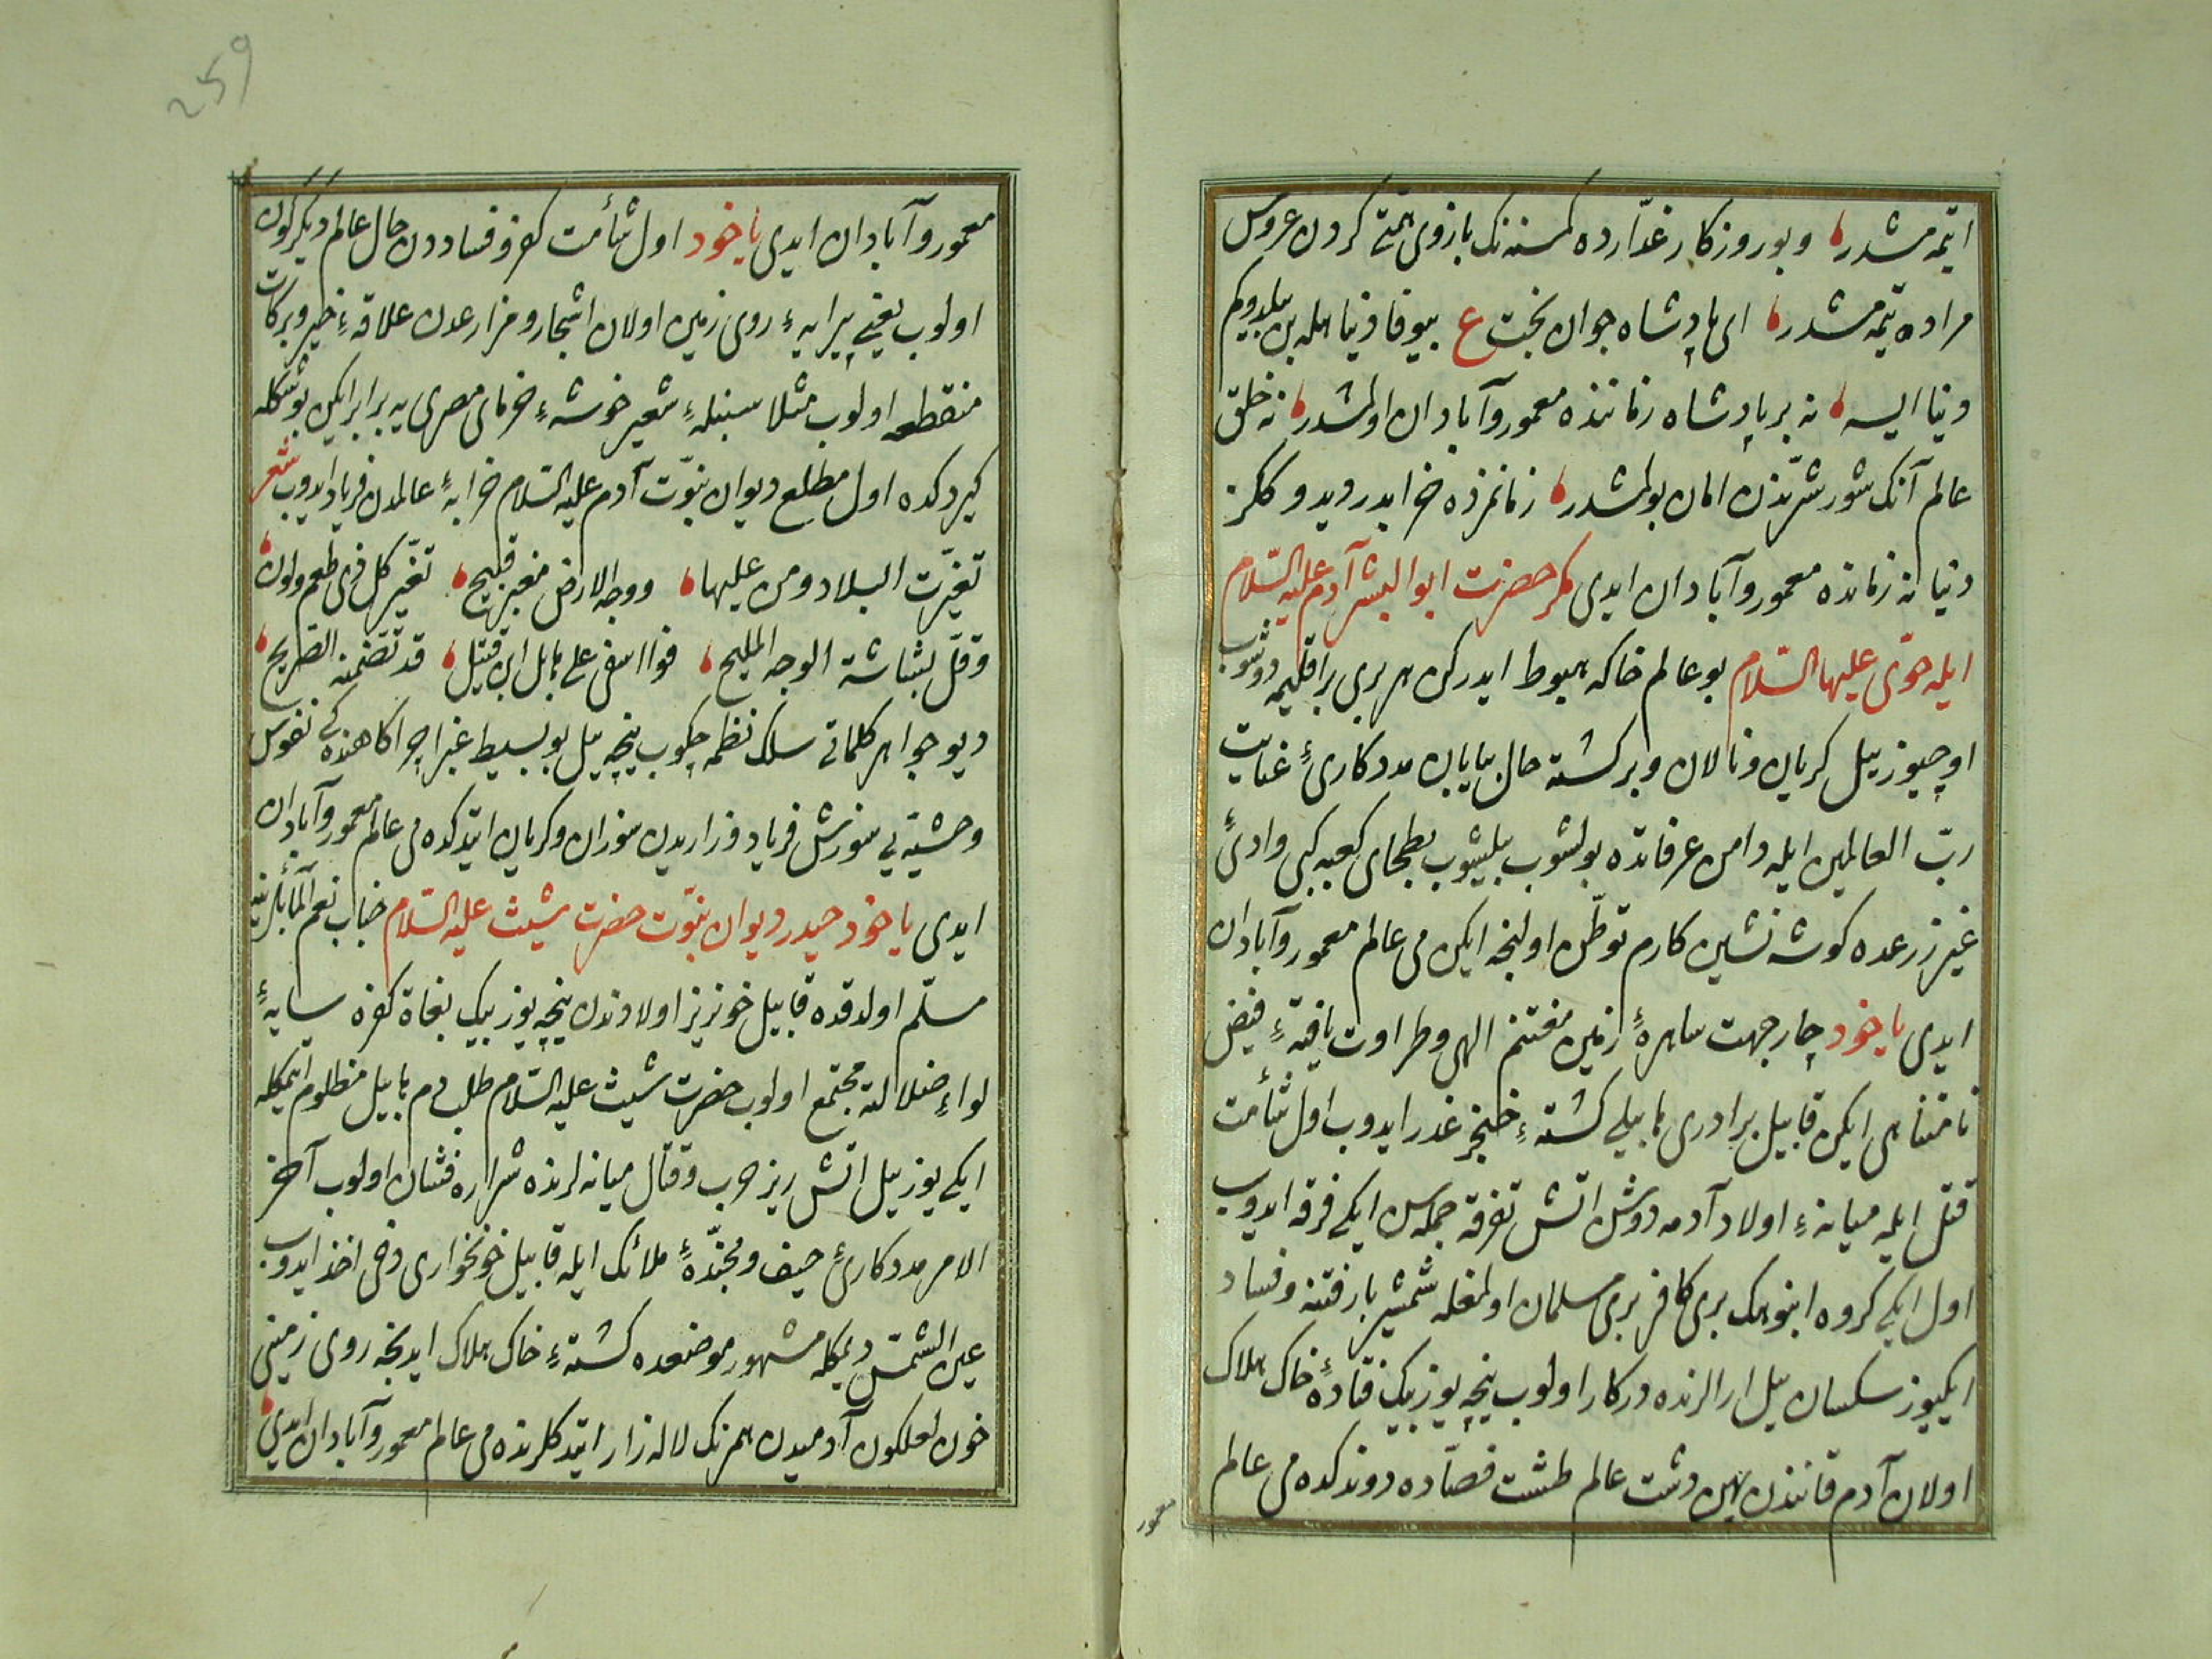 ایتمه مشدر و بو روزكار غدّارده كمسنه نك بازوی همّتی كردن عروس
مراده یتمه مشدر ای پادشاه جوان بخت ع بیوفا دنیا ایله بن بیلدوكم
دنیا ایسه نه بر پادشاه زماننده معمور و آبادان اولمشدر نه خلق
عالم آنك شور شرّندن امان بولمشدر زمانمزده خرابدر دیدوككز
دنیا نه زمانده معمور و آبادان ایدی مكر حضرت ابو البشر آدم علیه السّلام
ایله حوّی علیها السّلام بو عالم خاكه هبوط ایدركن هر بری بر اقلیمه دوشوب
اوچیوز ییل كریان و نالان و بركشته حال بیابان مددكاریٔ عنایت
ربّ العالمین ایله دامن عرفاتده بولشوب بیلیشوب بطحای كعبه كبی وادیٔ
غیر زرعده كوشه نشین كارم توطّن اولنجه ایكن می عالم معمور و آبادان
ایدی یا خود چار جهت ساهرهٔ زمین مغتنم الهی و طراوت یافتهٔ فیض
نامتناهی ایكن قابیل برادری هابیلی كشتهٔ خنجر غدر ایدوب اول شأمت
قتل ایله میانهٔ اولاد آدمه دوشن اتش تفرقه جمله سن ایكی فرقه ایدوب
اول ایكی كروه انبوهك بری كافر بری مسلمان اولمغله شمشیر بار فتنه و فساد
ایكیوز سكسان ییل ارالرنده دركار اولوب نیچه یوز بیك فتادهٔ خاك هلاك
اولان آدم قانندن پهن دشت عالم طشت فصّاده دوندكده می عالم
معمور
259
معمور و آبادان ایدی یا خود اول شأمت كفر و فساددن حال عالم دیكركون
اولوب یعنی پیرایهٔ روی زمین اولان اشجار و مزارعدن علاقهٔ خیر و بركات
منقطع اولوب مثلا سنبلهٔ شعیر خوشهٔ خرمای مصری یه برابر ایكن بو شكله
كیردكده اول مطلع دیوان نبوّت آدم علیه السّلام خرابهٔ عالمدن فریاد ایدوب شعر
تغیّرت البلاد و من علیها ووجه الارض مغبر قبیح تغیّر كل ذی طعم ولون
وقلّ بشاشة الوجه الملیح فوا اسفی علی هابل ابن قتیل قد تضمنه الضریح
دیو جواهر كلماتی سلك نظمه چكوب نیچه ییل بو بسیط غبرا چراكاهنده كی نفوس
وحشیّه یی سوزش فریاد و زاریدن سوزان و كریان ایتدكده می عالم معمور و آبادان
ایدی یا خود حیدر دیوان نبوّت حضرت شیث علیه السّلام جناب نعم
مسلّم اولدقده قابیل خونریز اولادندن نیچه یوز بیك بغاة كفره سایهٔ
لواء ضلالته مجتمع اولوب حضرت شیث علیه السّلام طلب دم هابیل مظلوم ایتمكله
ایكی یوز ییل اتش ریز حرب و قتال میانه لرنده شراره فشان اولوب آخر
الامر مددكاریٔ حیف و مجنّدهٔ ملائك ایله قابیل خونخواری دخی اخذ ایدوب
عین الشمس دیمكله مشهور موضعده كشتهٔ خاك هلاك ایدنجه روی زمینی
خون لعلكون آدمیدن همرنك لاله زار ایتدكلرنده می عالم معمور و آبادان ایدی